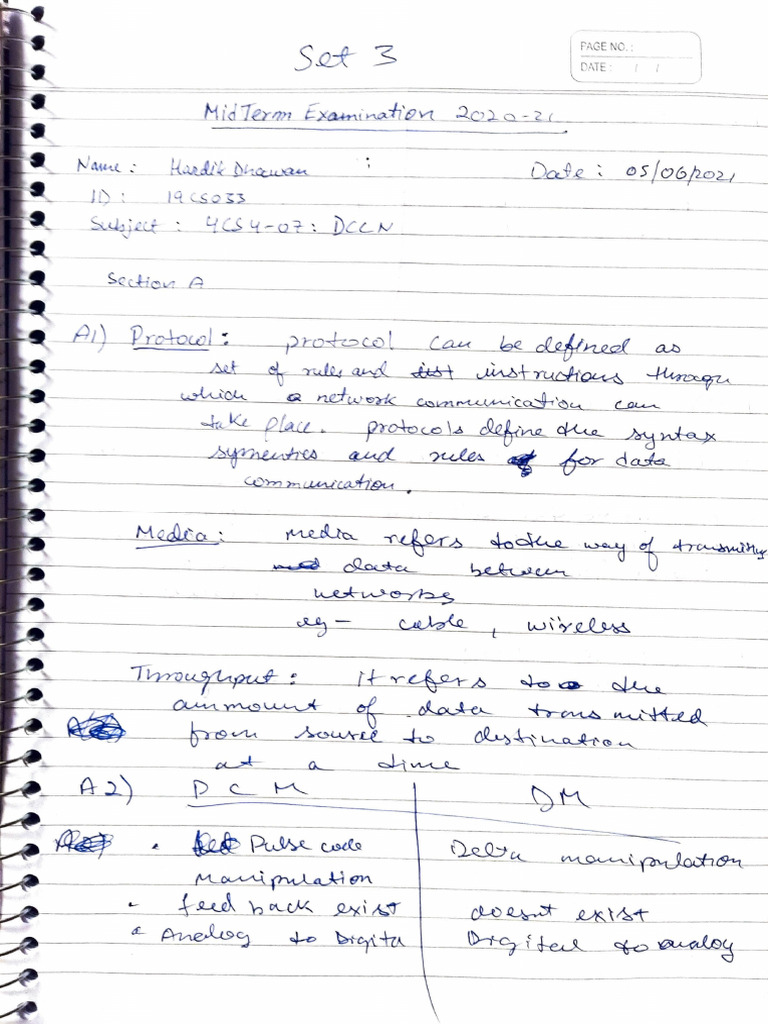 Set 3
PAGE NO.:
DATE: / /
MidTerm Examination 2020-21
Name: Hardik Dhawan :
Date: 05/06/2021
ID: 19CS033
Subject: 4CS4-07: DCCN
Section A
A1) Protocol: protocol can be defined as
set of rules and instructions through
which a network communication can
take place. protocols define the syntax
symentics and rules for data
communication.
Media: media refers to the way of transmiting
data between
networks
eg- cable, wireless
Throughput: it refers to the
ammount of data transmitted
from source to destination
at a time
A2) PCM DM
• Pulse code Delta manipulation
Manipulation
• feed back exist doesnt exist
• Analog to Digita Digital to analog